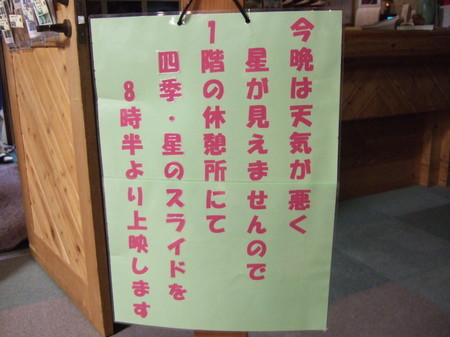 今晩は天気が悪く
星が見えませんので
1階の休憩所にて
四季・星のスライドを
8時半より上映します